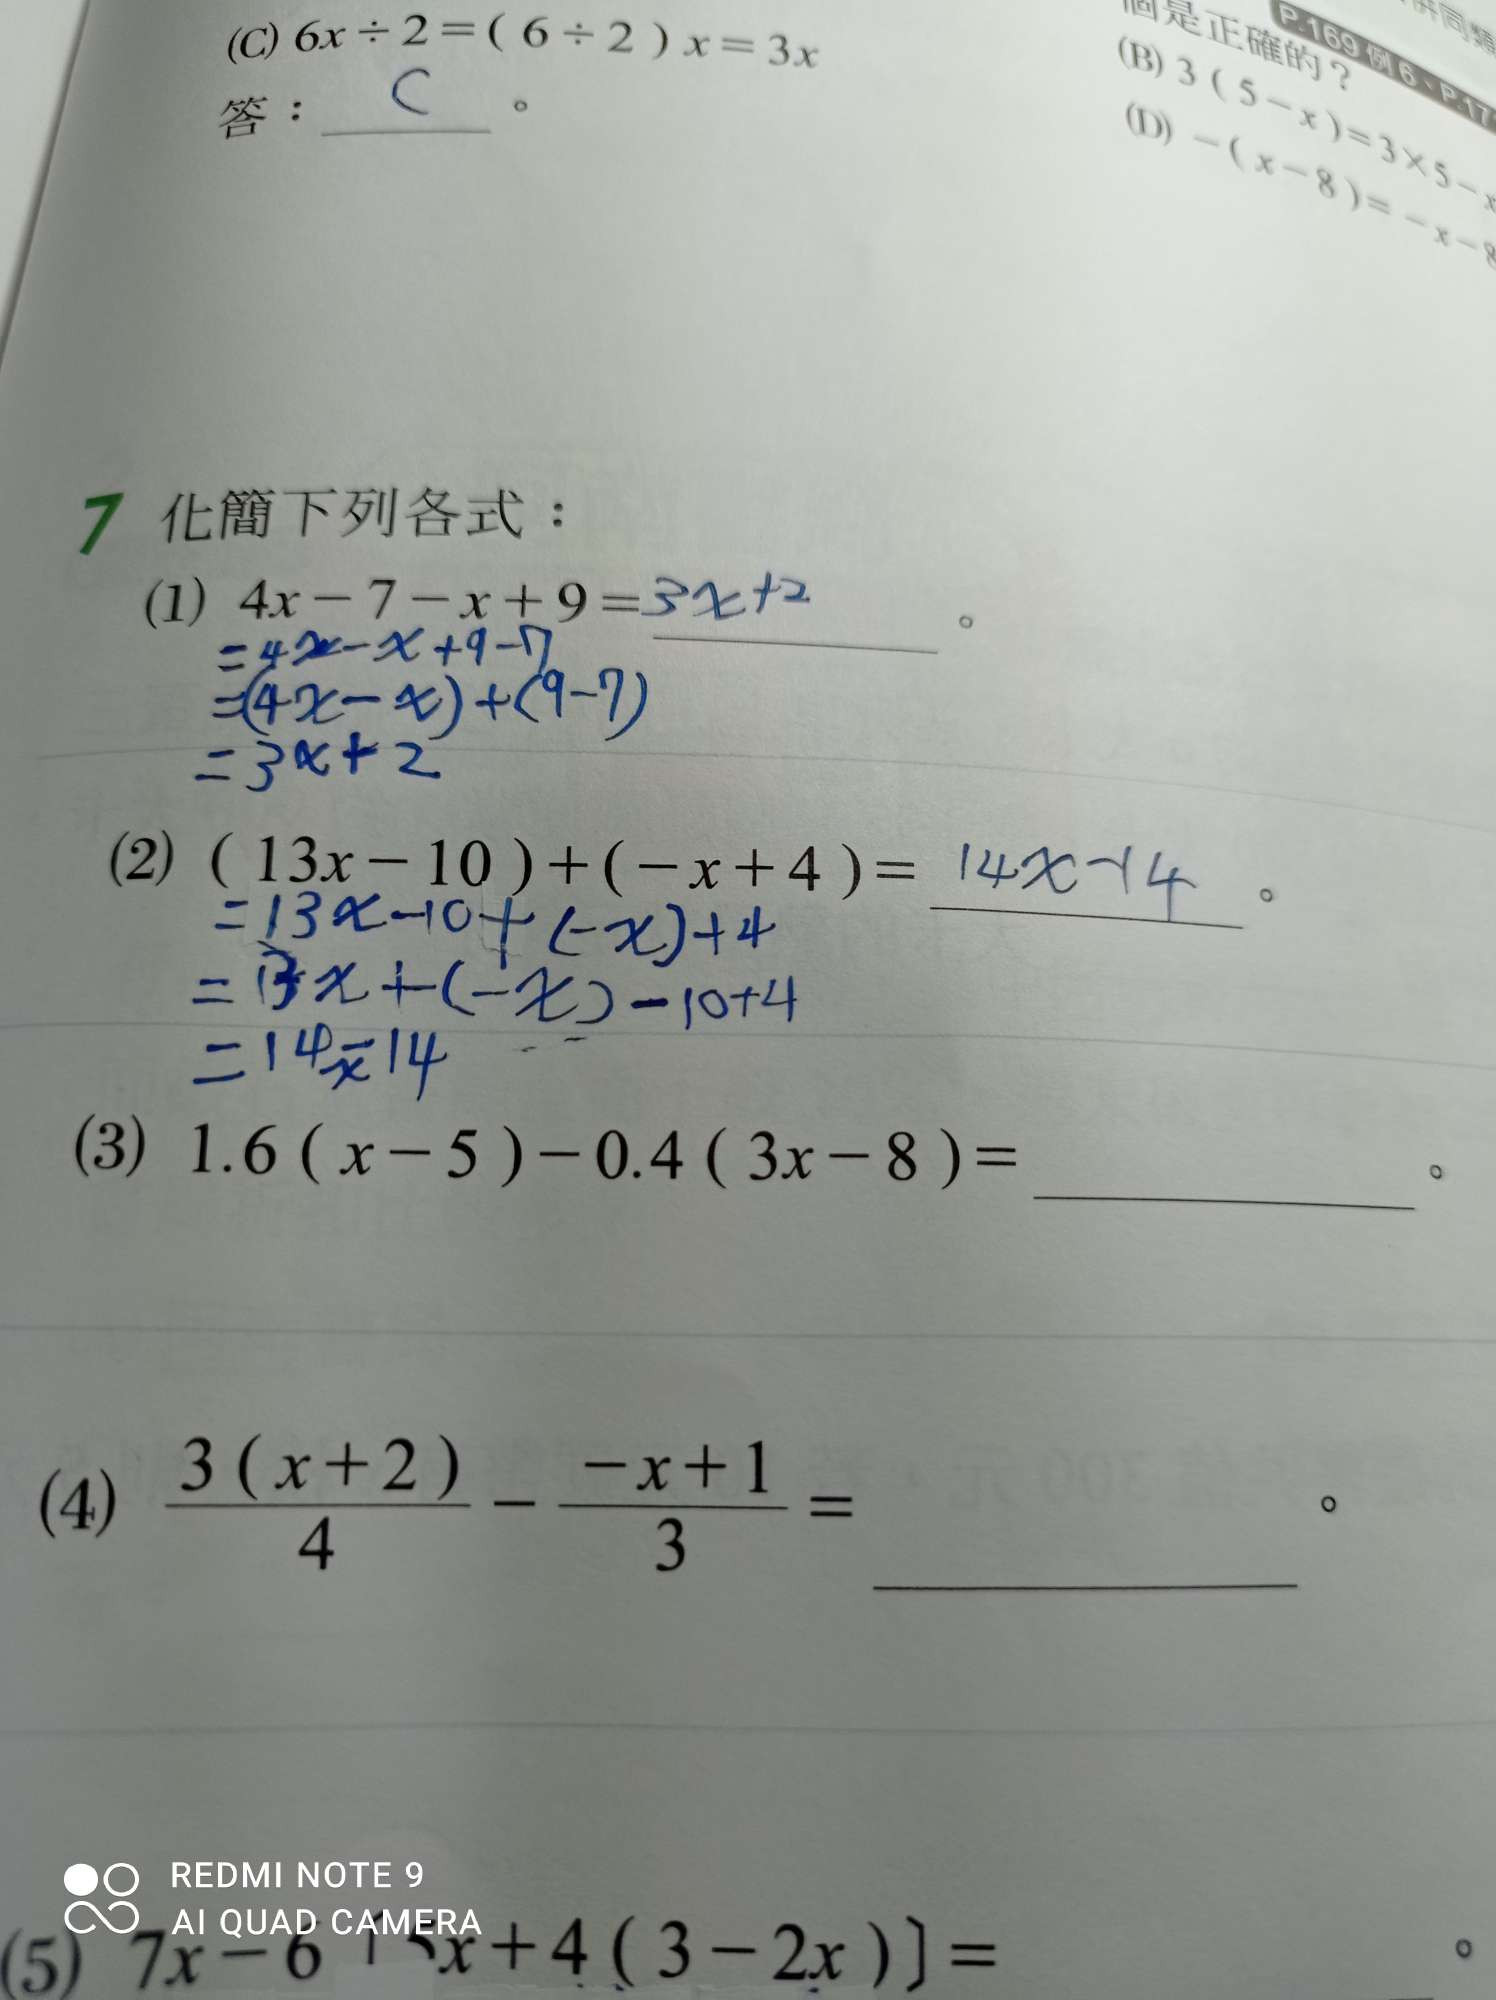 (C) 6x÷2=(6÷2)x=3x
答：C。
個是正確的？
P.169 例 6、P.17
併同類
(B) 3(5-x)=3×5-x
(D) -(x-8)=-x-8
7 化簡下列各式：
(1) 4x-7-x+9=3x+2。
=4x-x+9-7
=(4x-x)+(9-7)
=3x+2
(2) (13x-10)+(-x+4)=14x-14。
=13x-10+(-x)+4
=13x+(-x)-10+4
=14x-14
(3) 1.6(x-5)-0.4(3x-8)=。
(4) 3(x+2)/4 - -x+1/3 =。
REDMI NOTE 9
AI QUAD CAMERA
(5) 7x-6[5x+4(3-2x)]=。